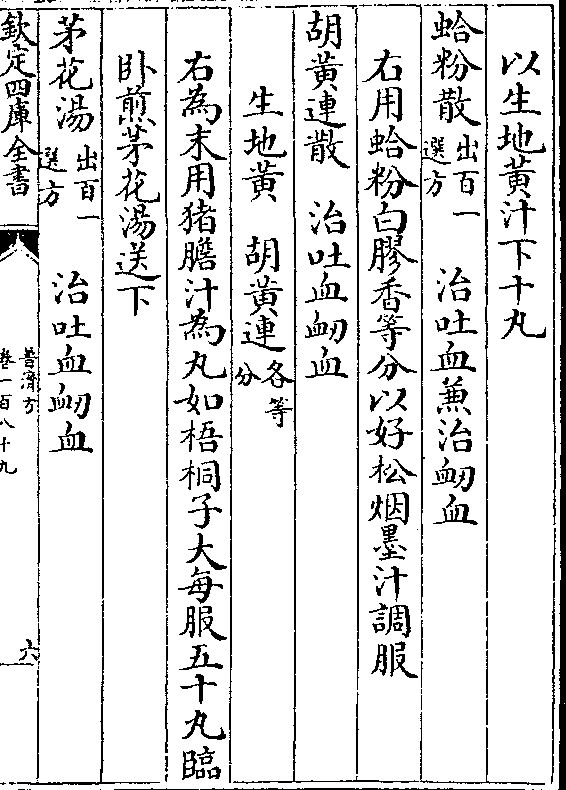 以生地黃汁下十丸
蛤粉散出百一選方　治吐血兼治衂血
右用蛤粉白膠香等分以好松烟墨汁調服
胡黃連散　治吐血衂血
生地黃　胡黃連各等分
右為末用猪膽汁為丸如梧桐子大每服五十丸臨
卧煎茅花湯送下
茅花湯出百一選方　治吐血衂血
欽定四庫全書
普濟方
卷一百八十九
六